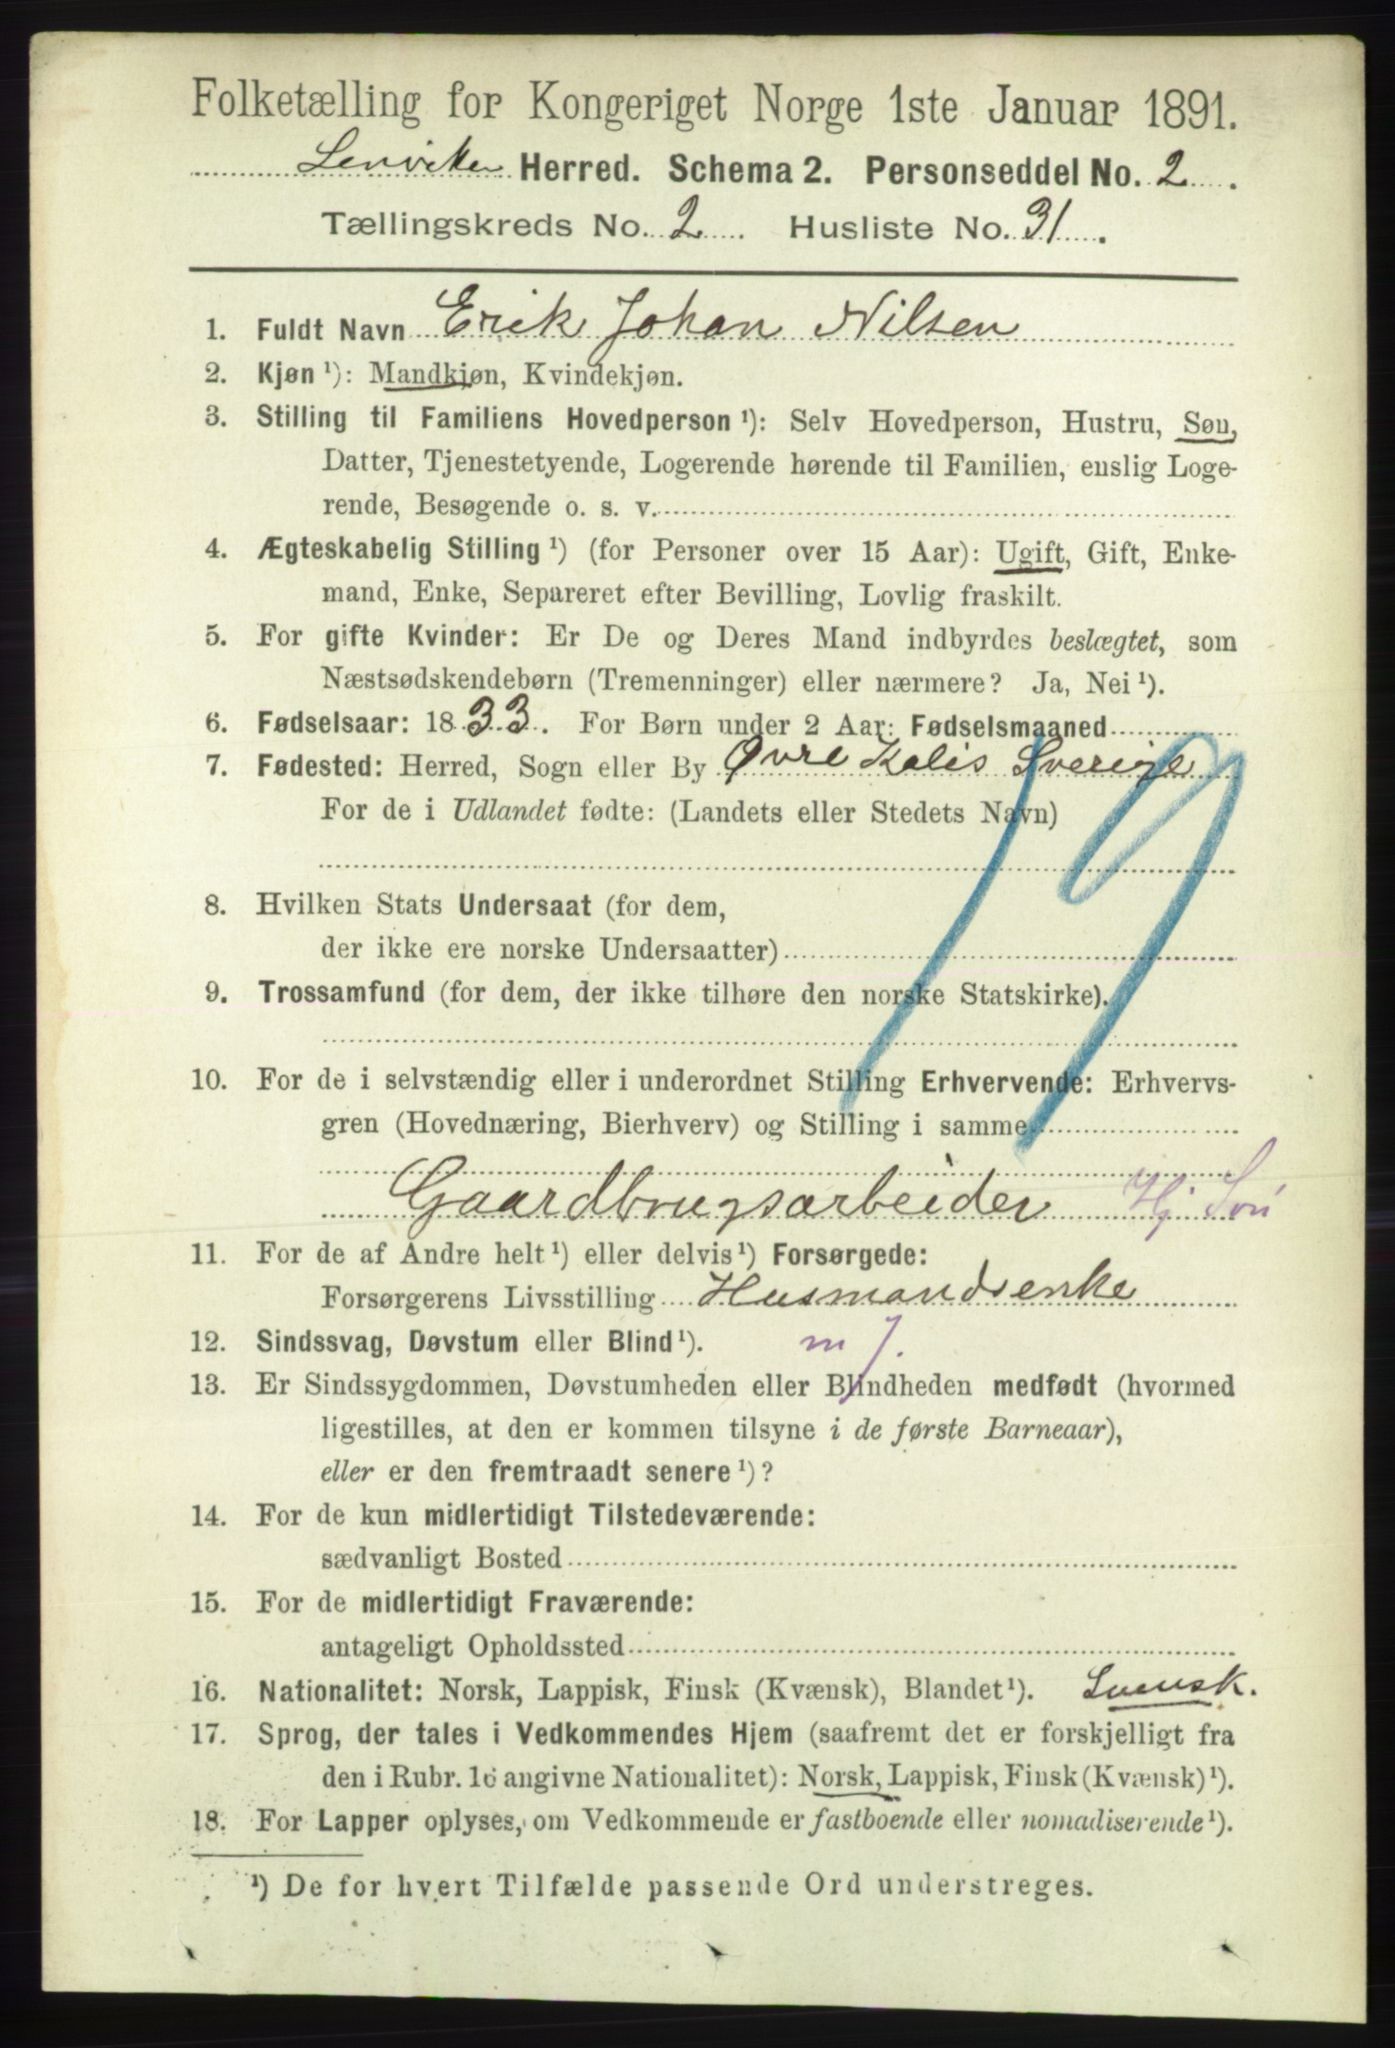 Folketælling for Kongeriget Norge 1ste Januar 1891.
Lenviken Herred. Schema 2. Personseddel No. 2.
Tællingskreds No. 2. Husliste No. 31.
1. Fuldt Navn Erik Johan Nilsen
2. Kjøn ¹): Mandkjøn, Kvindekjøn.
3. Stilling til Familiens Hovedperson ¹): Selv Hovedperson, Hustru, Søn,
Datter, Tjenestetyende, Logerende hørende til Familien, enslig Loge-
rende, Besøgende o. s. v.
4. Ægteskabelig Stilling ¹) (for Personer over 15 Aar): Ugift, Gift, Enke-
mand, Enke, Separeret efter Bevilling, Lovlig fraskilt.
5. For gifte Kvinder: Er De og Deres Mand indbyrdes beslægtet, som
Næstsødskendebørn (Tremenninger) eller nærmere? Ja, Nei ¹).
6. Fødselsaar: 1833. For Børn under 2 Aar: Fødselsmaaned
7. Fødested: Herred, Sogn eller By Øvre Kalis Sverige
For de i Udlandet fødte: (Landets eller Stedets Navn)
8. Hvilken Stats Undersaat (for dem,
der ikke ere norske Undersaatter)
9. Trossamfund (for dem, der ikke tilhøre den norske Statskirke).
10. For de i selvstændig eller i underordnet Stilling Erhvervende: Erhvervs-
gren (Hovednæring, Bierhverv) og Stilling i samme
Gaardbrugsarbeider Hj
11. For de af Andre helt ¹) eller delvis ¹) Forsørgede:
Forsørgerens Livsstilling Husmandsenke
12. Sindssvag, Døvstum eller Blind ¹).
13. Er Sindssygdommen, Døvstumheden eller Blindheden medfødt (hvormed
ligestilles, at den er kommen tilsyne i de første Barneaar),
eller er den fremtraadt senere ¹)?
14. For de kun midlertidigt Tilstedeværende:
sædvanligt Bosted
15. For de midlertidigt Fraværende:
antageligt Opholdssted
16. Nationalitet: Norsk, Lappisk, Finsk (Kvænsk), Blandet ¹). Svensk.
17. Sprog, der tales i Vedkommendes Hjem (saafremt det er forskjelligt fra
den i Rubr. 16 angivne Nationalitet): Norsk, Lappisk, Finsk (Kvænsk) ¹).
18. For Lapper oplyses, om Vedkommende er fastboende eller nomadiserende ¹).
¹) De for hvert Tilfælde passende Ord understreges.